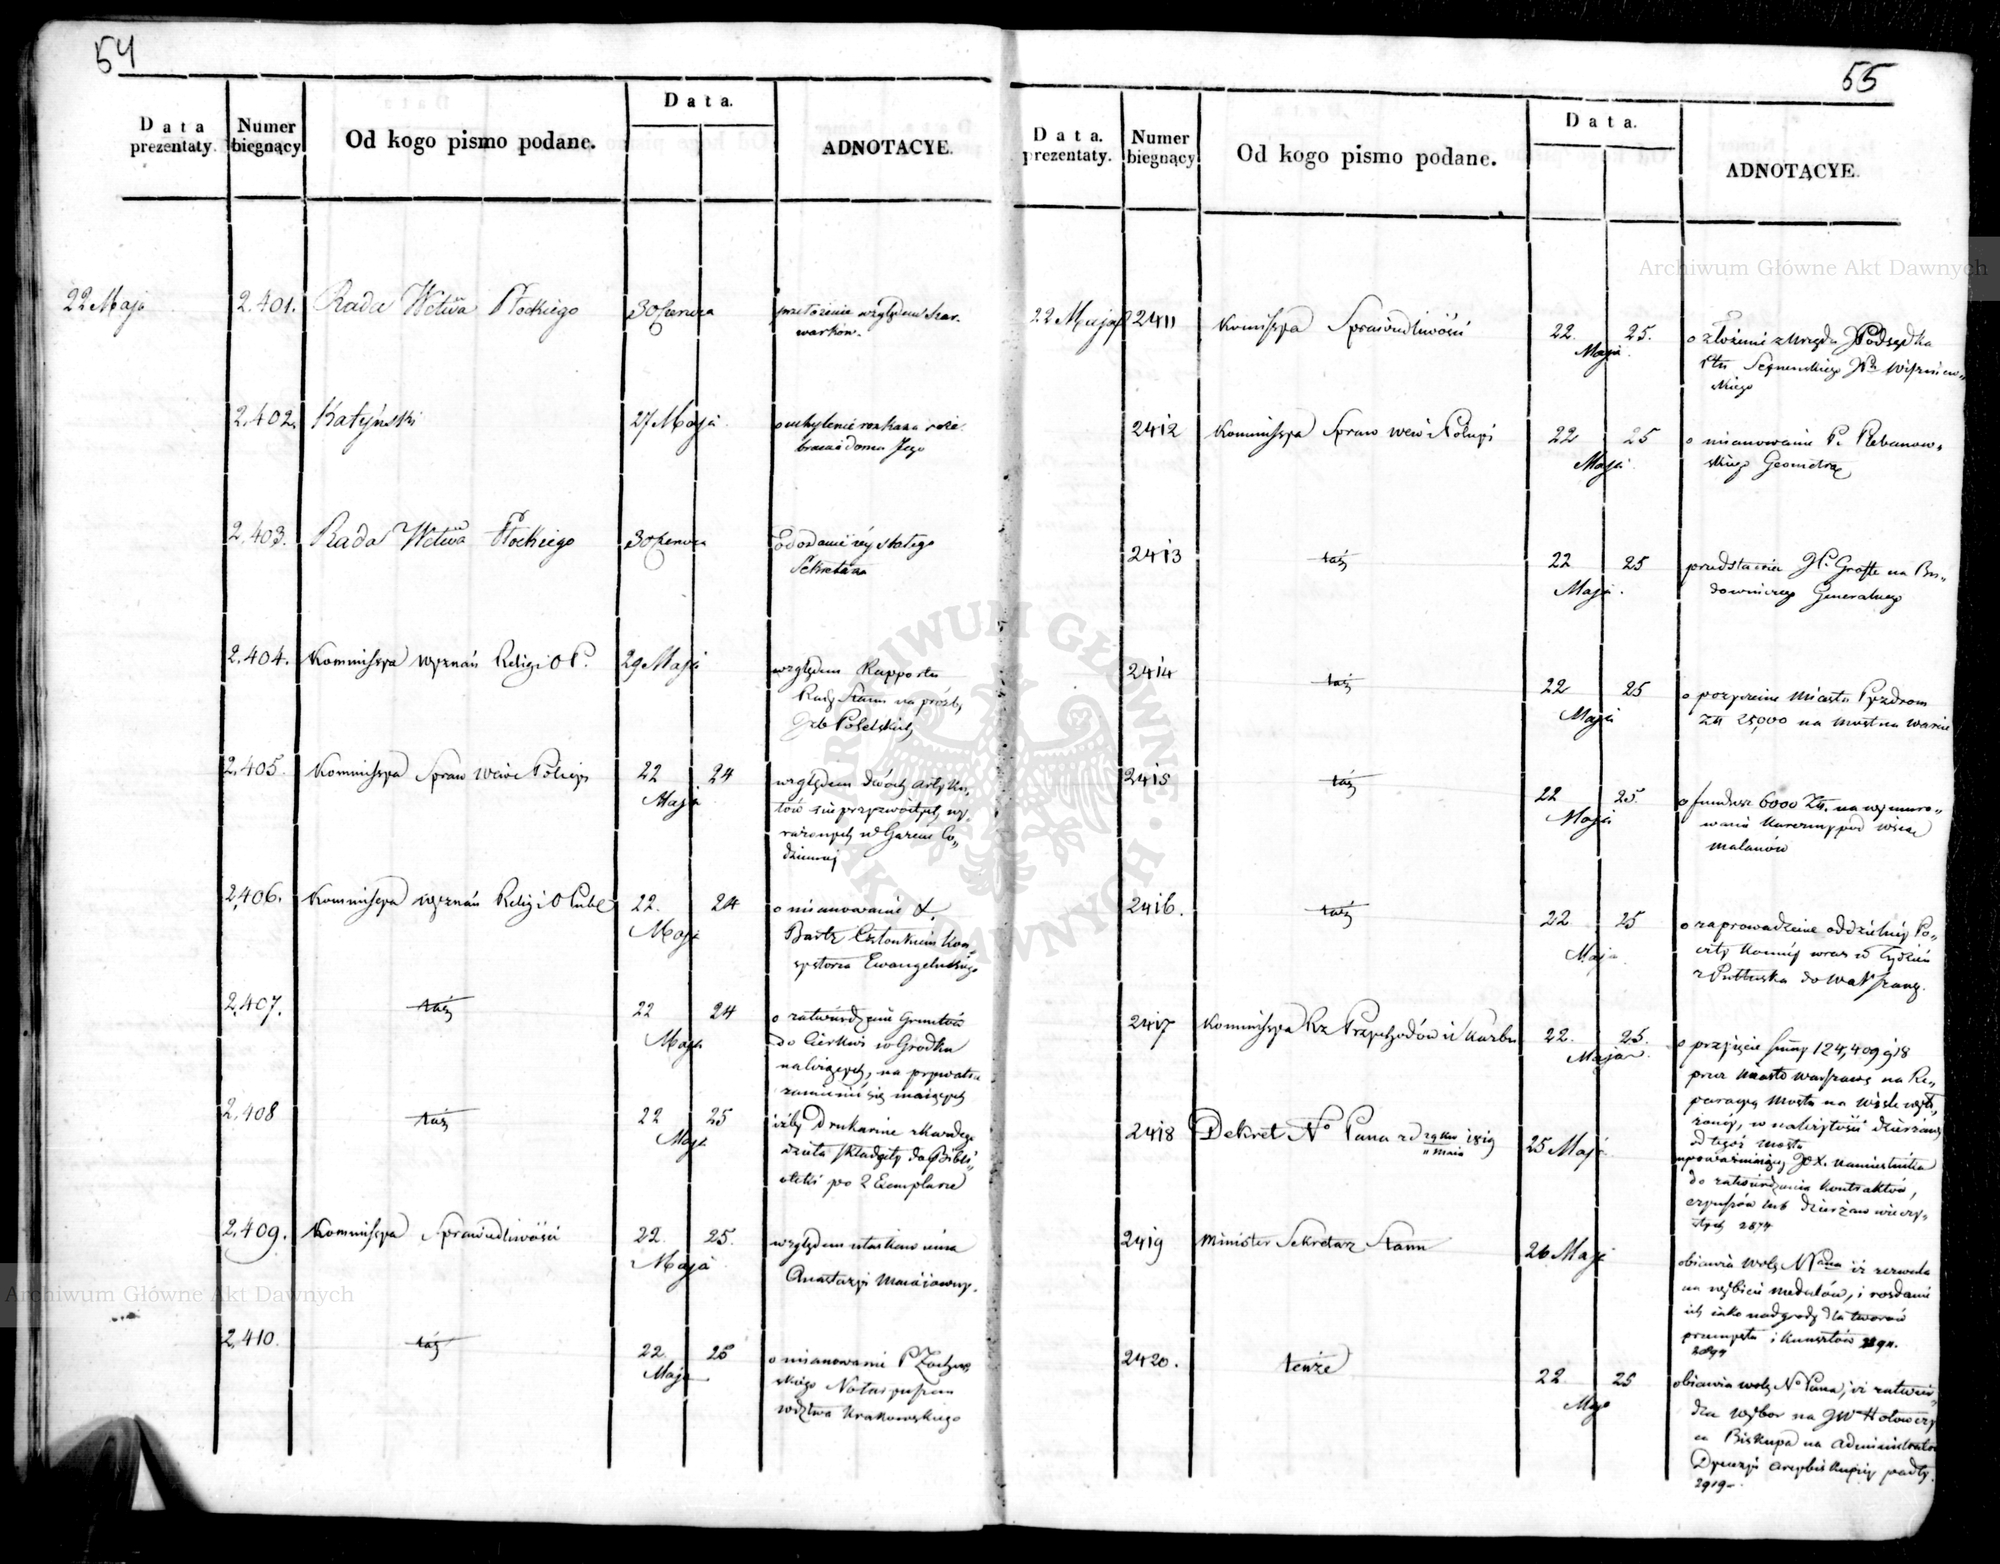 54
Data prezentaty.
Numer biegnący
Od kogo pismo podane.
Data.
ADNOTACYE.
22 Maja
2,401.
Rada Wctwa Płockiego
30 Czerwca
przełożenie względem szar-
warków.
2,402.
Katyński
27 Maja
o uchylenie rozkazu roze-
brania domu Jego
2,403.
Rada Wctwa Płockiego
30 Czerwca
stałego
Sekretarza
2,404.
Kommissya wyznań Religi O P.
29 Maja
względem Rapportu
Rady Stanu na prośby
2,405.
Kommissya Spraw Wew i Policyi
22
24
Maja
względem dwóch artyku-
łów nieprzyzwoitych wy-
rażonych w Gazecie Co-
dziennej
2,406.
Kommissya wyznań Religi O Publ
22.
24
Maja
o mianowanie X.
Członkiem Kon-
systorza Ewangelickiego
2,407.
taż
22
24
Maja
o zatwierdzenie Gruntów
do Cerkwi w Gródku
należących, na prywatne
zamienić się mających
2,408
taż
22
25
Maja
iżby Drukarnie każdego
dzieła składały do Biblio-
teki po 2 Exemplarze
2,409.
Kommissya Sprawiedliwości
22.
25.
Maja
względem ułaskawienia
Anastazyi
2,410.
taż
22
25
Maja
o mianowanie P
skiego Notaryuszem
wdztwa Krakowskiego
55
Data. prezentaty.
Numer biegnący
Od kogo pismo podane.
Data.
ADNOTACYE.
22 Maja
2411
Komissya Sprawiedliwości
22.
25.
Maja
o złożenie z Urzędu Podsędka
Ptu Wiszniew-
skiego
2412
Kommissya Spraw Wew i Policyi
22
25
Maja
o mianowanie P. Plebanow-
skiego Geometrą
2413
taż
22
25
Maja.
przedstawia na Bu-
downiczego Generalnego
2414
taż
22
25
Maja
o pożyczenie Miastu Pyzdrom
Zł 25,000 na most na Warcie
2415
taż
22
25.
Maja
o fundusz 6000 Zł. na wymuro-
wanie Karczmy pod wsią
Malanów
2416.
taż
22
25
Maja
o zaprowadzenie oddzielnej Po-
czty konnej wraz w Tydzień
z Pułtuska do Warszawy.
2417
Kommissya Rz Przychodów i Skarbu
22.
25.
Maja
o przyjęcie Summy 124,409 g 18
przez Miasto Warszawę na Re-
paracyą Mostu na Wiśle
w należytości dzierżawy
od tegoż mostu
2418
Dekret No Pana z d 29 Kw 1819
" Maia
25 Maja
upoważniający JOX. Namiestnika
do zatwierdzenia kontraktów,
czynszów lub dzierżaw wieczy-
stych 2874
2419
Minister Sekretarz Stanu
26 Maja
obiawia wolę N Pana iż zezwala
na wybicie medalów, i rozdanie
ich iako nadgrody dla tworów
przemysłu i kunsztów
2894
2420.
tenże
22
25
Maja
obiawia wolę No Pana, iż zatwier-
dza wybor na JW Hołowczy-
ca Biskupa na Administratora
Dyecezyi Arcybiskupiej
2919
Archiwum Główne Akt Dawnych
Archiwum Główne Akt Dawnych
ARCHIWUM GŁÓWNE AKT DAWNYCH